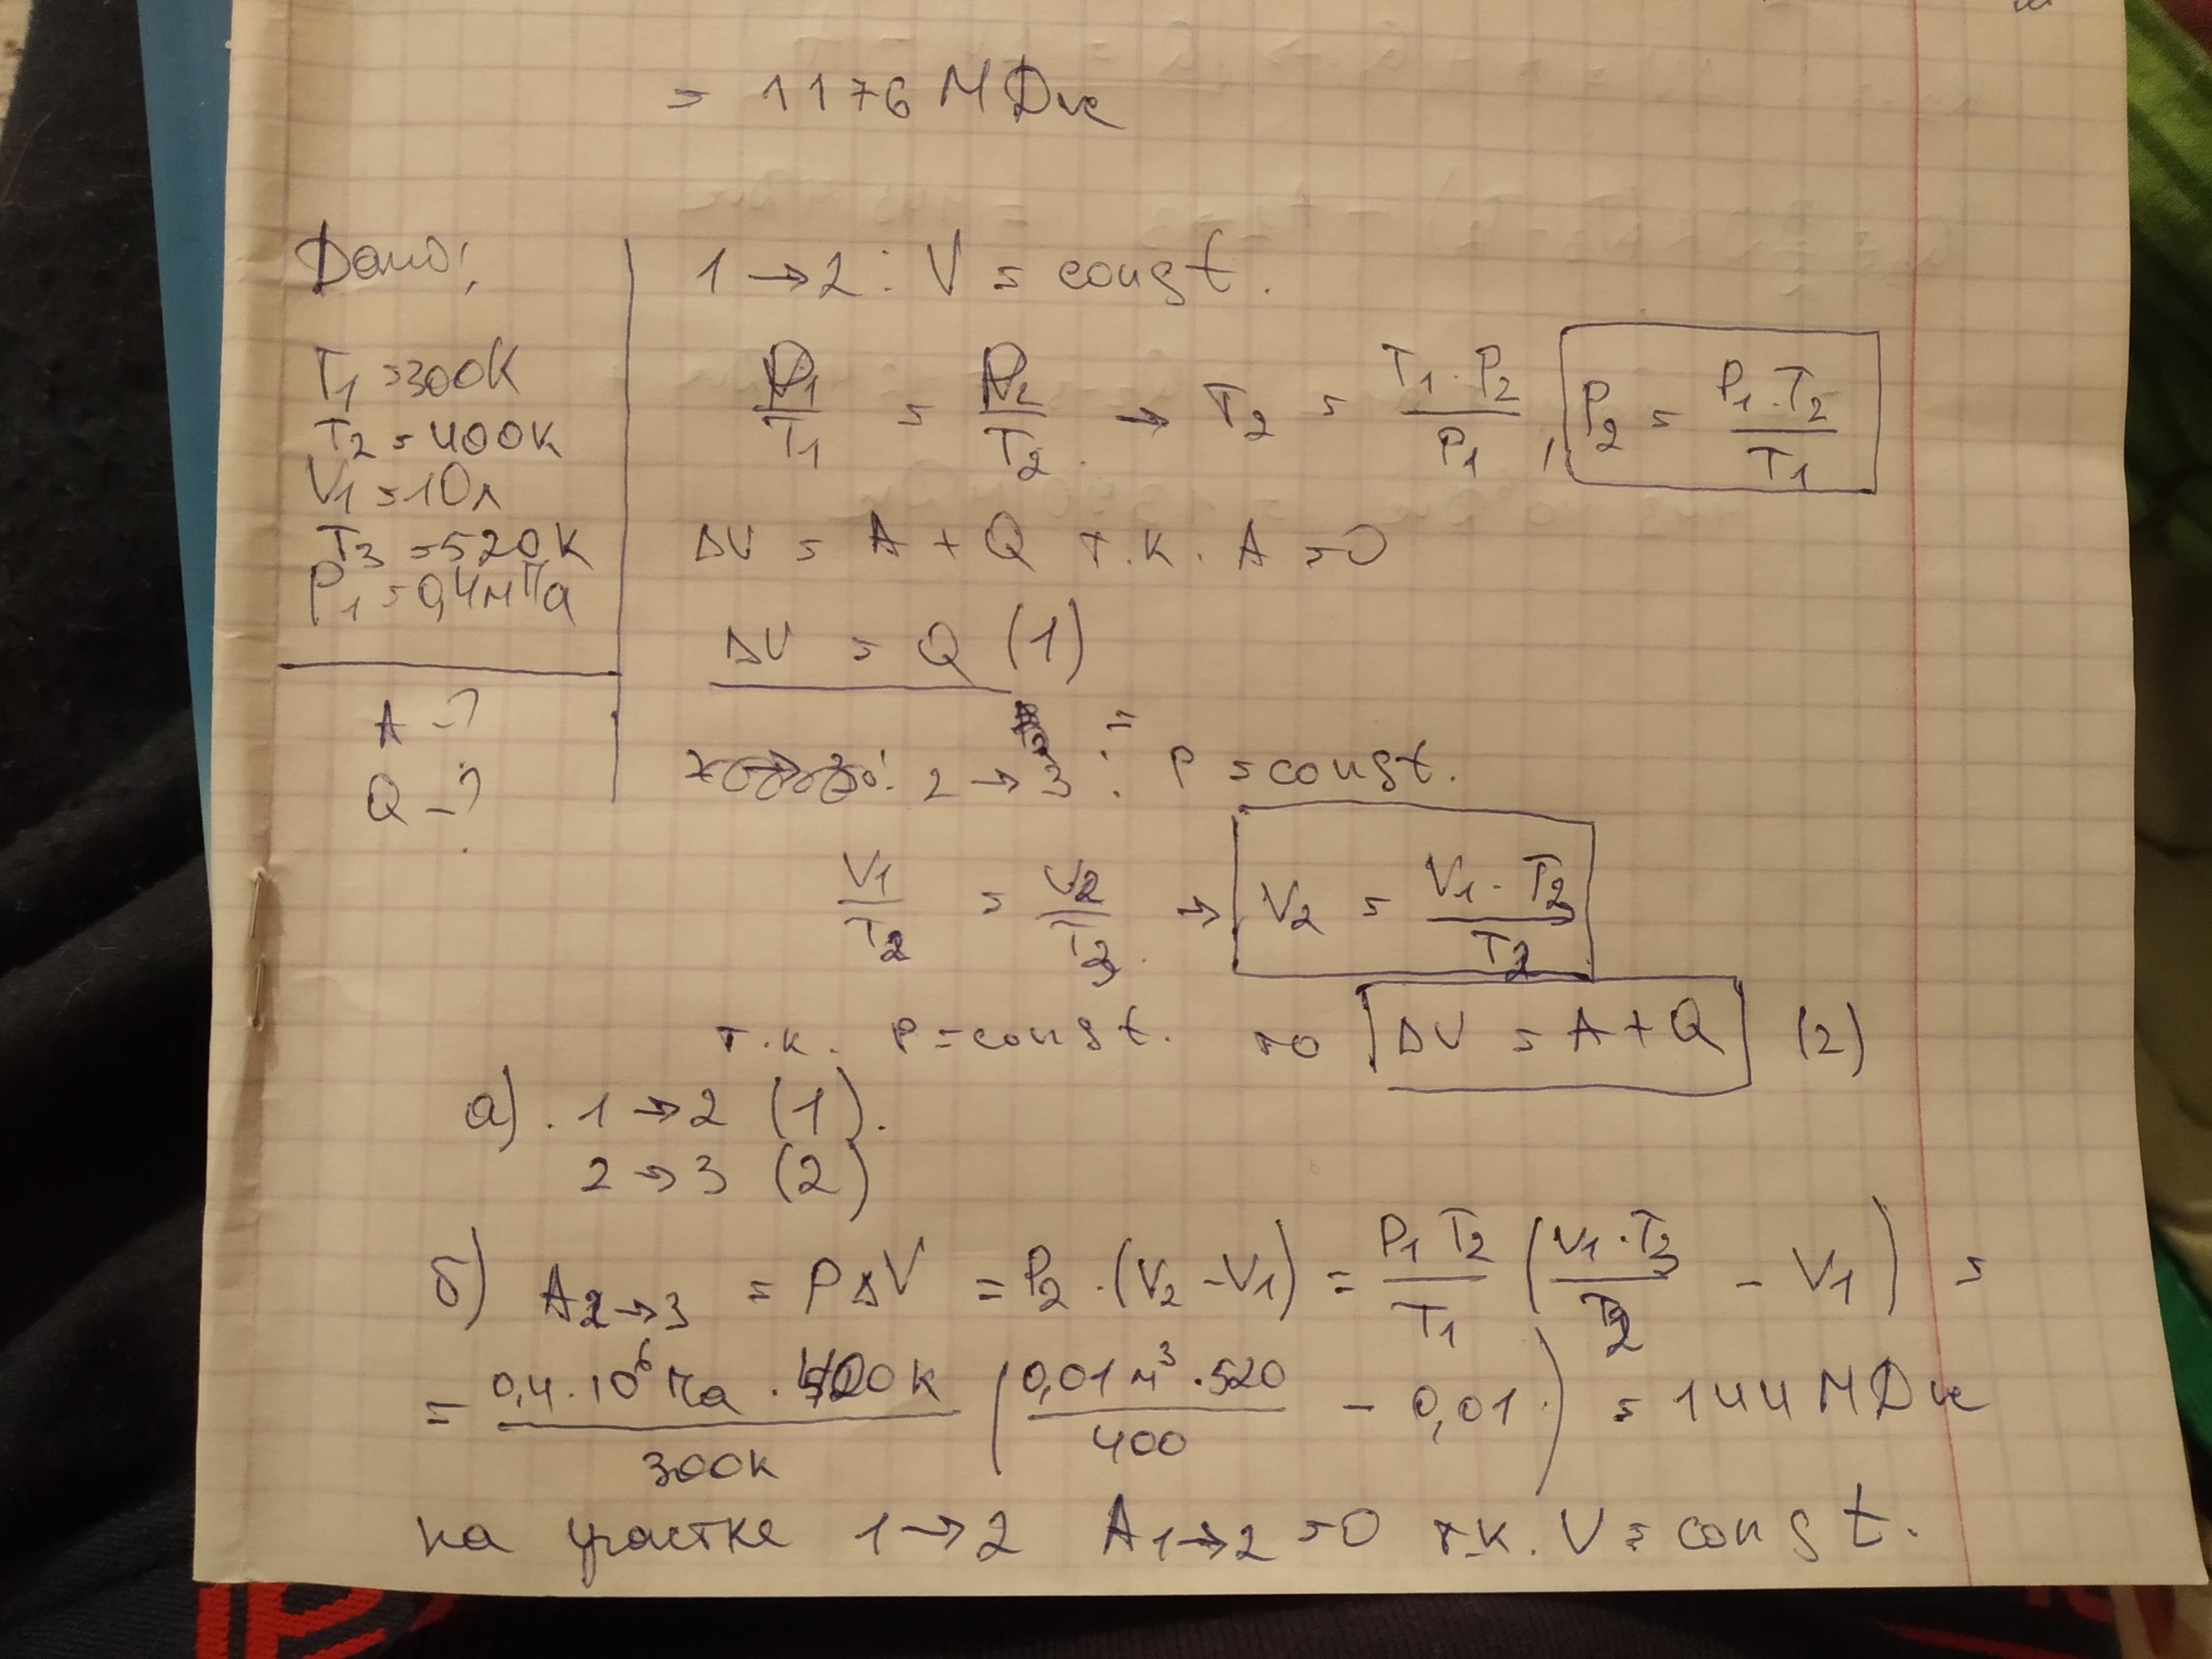 = 1176 МДж
Дано:
T₁ = 300К
T₂ = 400К
V₁ = 10л
T₃ = 520К
P₁ = 0,4мПа
A - ?
Q - ?
1 → 2 : V = const.
P₁/T₁ = P₂/T₂ → T₂ = T₁ · P₂/P₁ , P₂ = P₁ · T₂/T₁
ΔU = A + Q т.к. A = 0
ΔU = Q (1)
2 → 3 : P = const.
V₁/T₂ = V₂/T₃ → V₂ = V₁ · T₃/T₂
т.к. P = const. то ΔU = A + Q (2)
а). 1 → 2 (1).
2 → 3 (2)
б) A₂→₃ = PΔV = P₂ · (V₂ - V₁) = P₁ T₂/T₁ (V₁ · T₃/T₂ - V₁) =
= 0,4 · 10⁶ Па · 400к/300к (0,01 м³ · 520/400 - 0,01) = 144 МДж
на участке 1 → 2 A₁→₂ = 0 т.к. V = const.